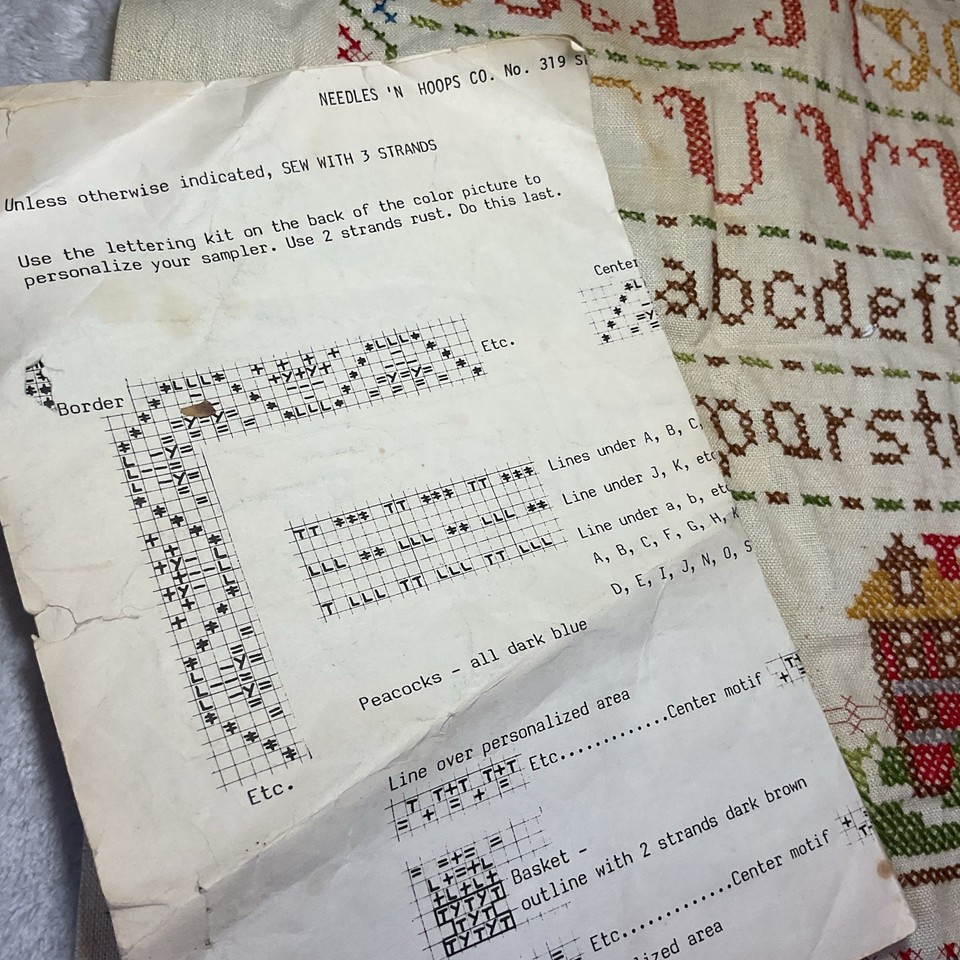 NEEDLES 'N HOOPS CO. No. 319
Unless otherwise indicated, SEW WITH 3 STRANDS
Use the lettering kit on the back of the color picture to
personalize your sampler. Use 2 strands rust. Do this last.
Center
Etc.
Border
Lines under A, B, C,
Line under J, K, etc
Line under a, b, etc
A, B, C, F, G, H, K
D, E, I, J, N, O, S
Peacocks - all dark blue
Etc.
Line over personalized area
Etc...........Center motif
Basket -
outline with 2 strands dark brown
Etc...........Center motif
lized area
abcdef
pqrst